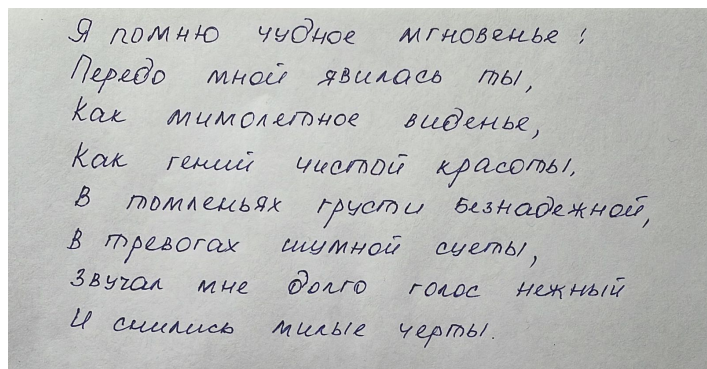 Я помню чудное мгновенье:
Передо мной явилась ты,
Как мимолетное виденье,
Как гений чистой красоты.
В томленьях грусти безнадежной,
В тревогах шумной суеты,
Звучал мне долго голос нежный
И снились милые черты.